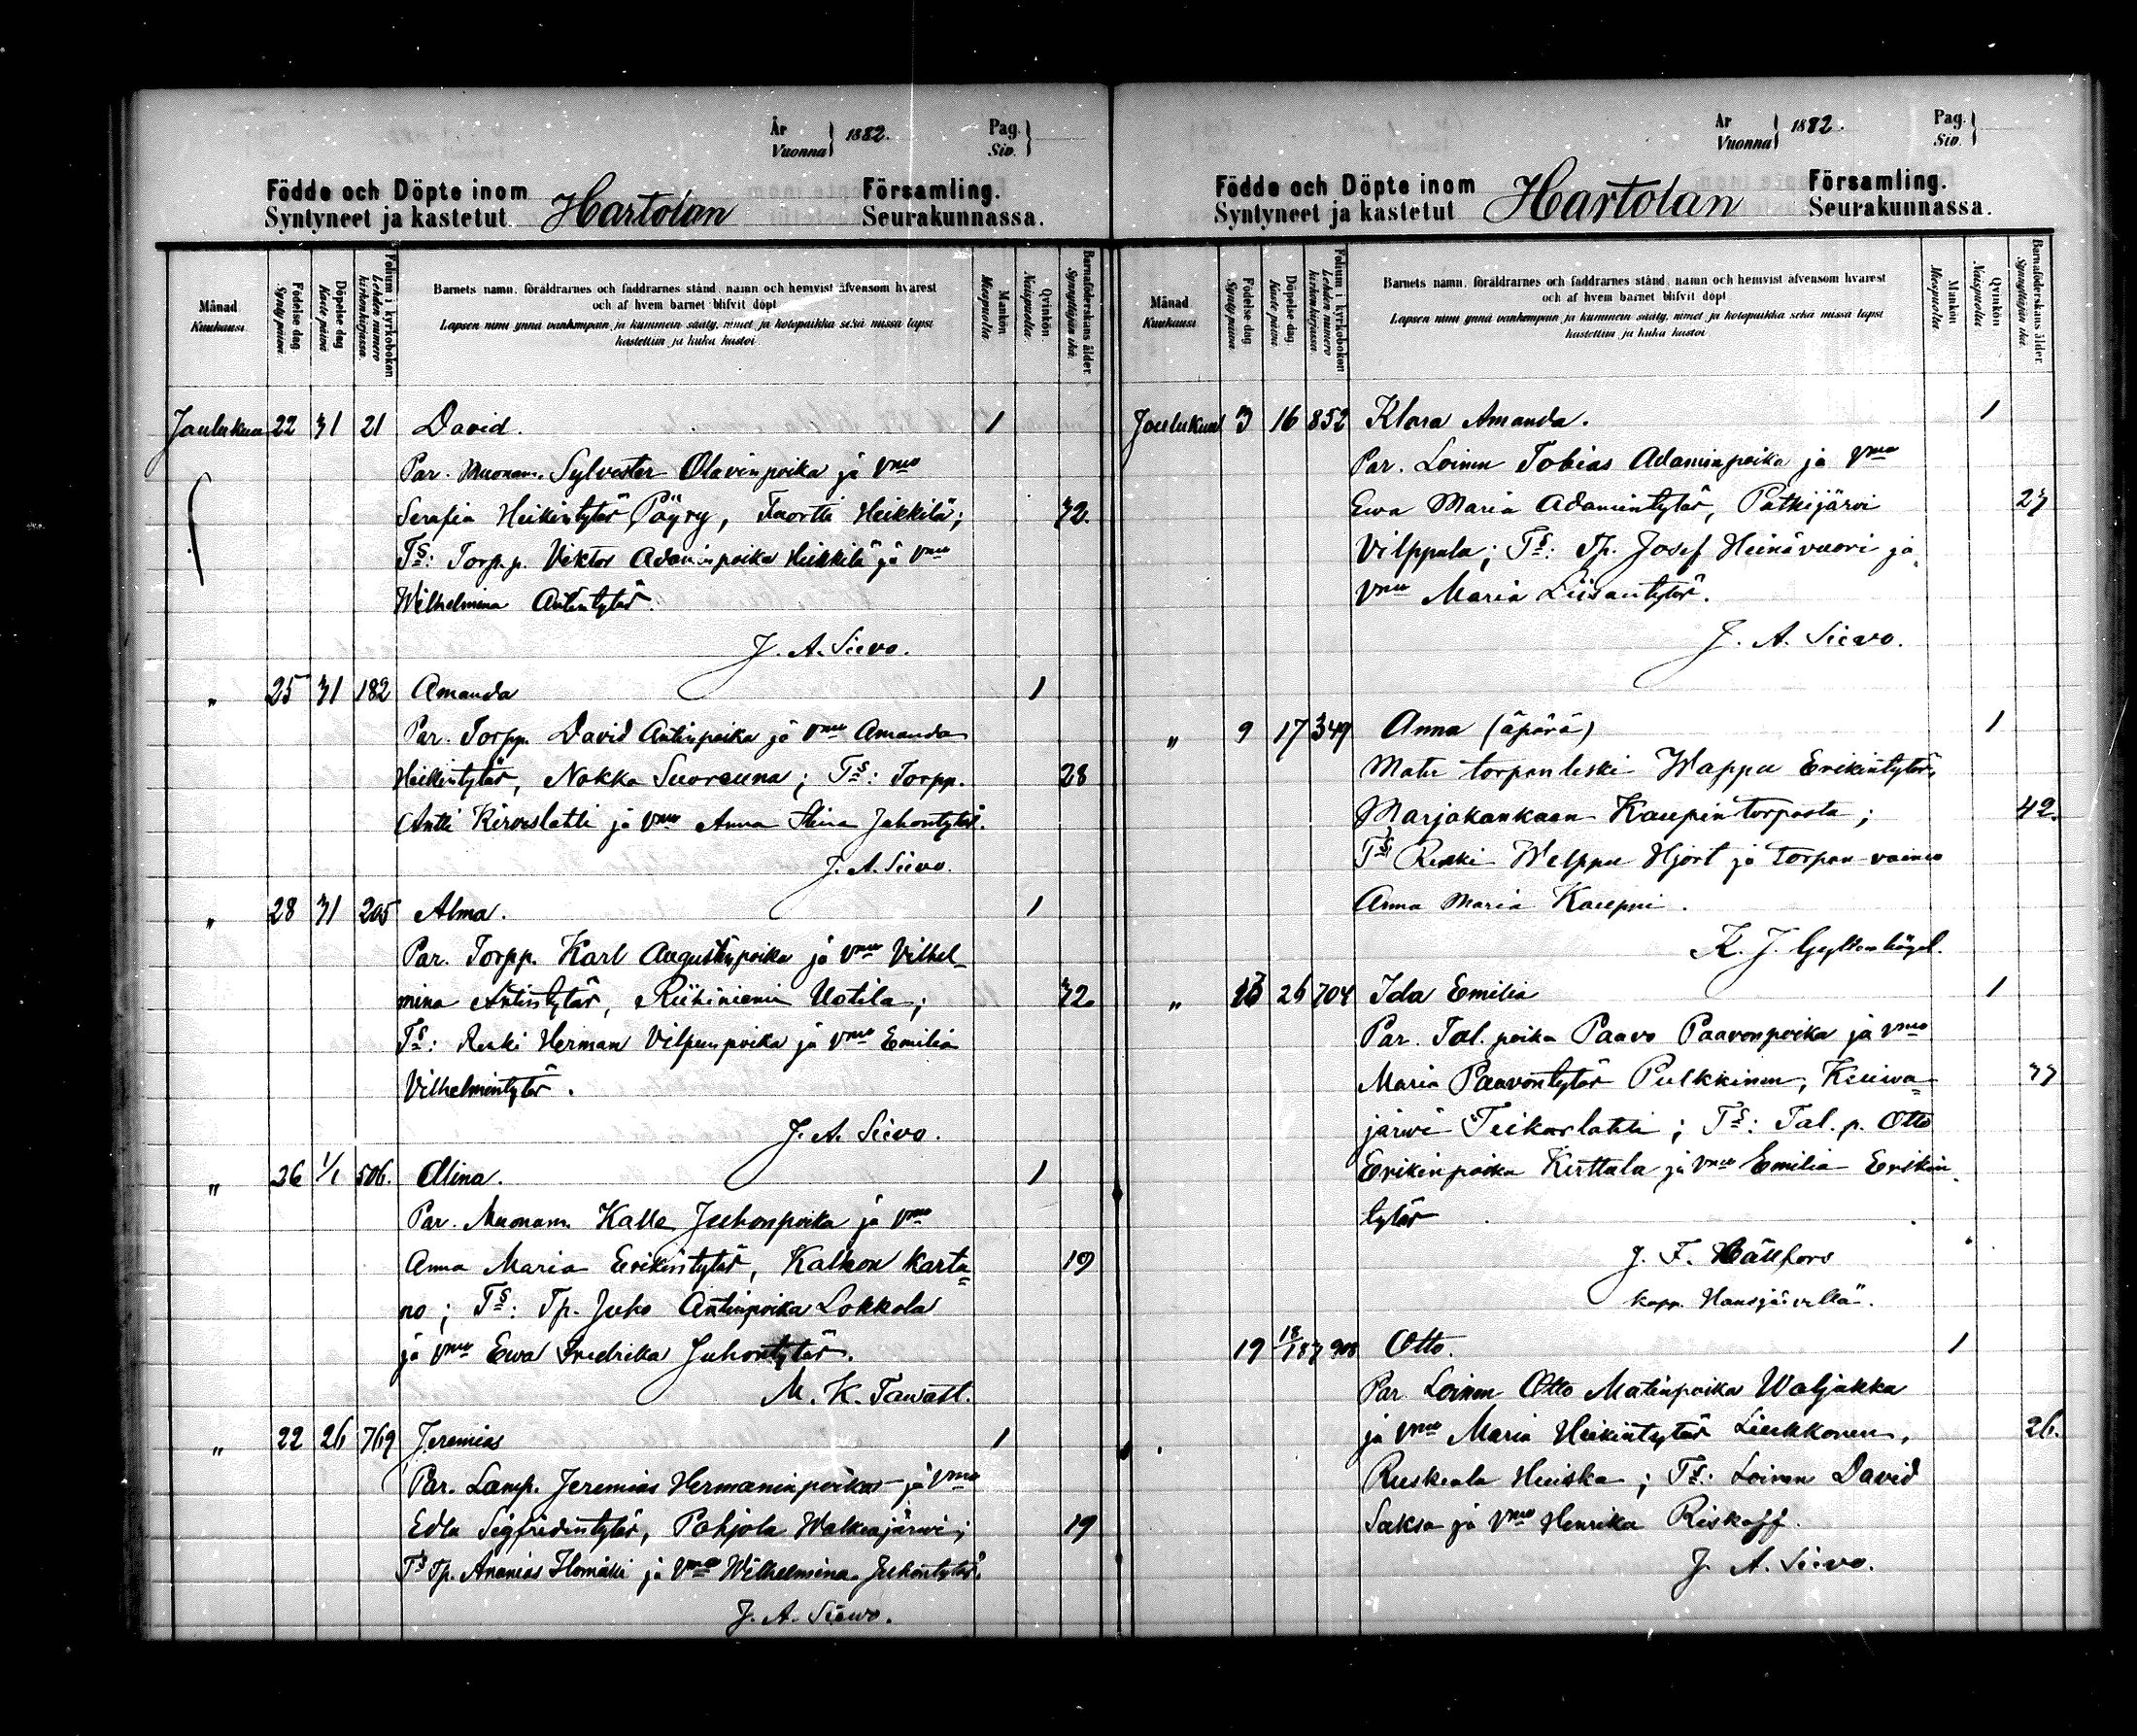 År
Vuonna } 1882.
Pag.
Siv. }
Födde och Döpte inom
Syntyneet ja kastetut Hartolan
Församling.
Seurakunnassa.
Månad
Kuukausi
Födelse dag
Synty päivä
Döpelse dag
Kaste päivä
Folium i kyrkoboken
Lehden numero kirkonkirjassa
Barnets namn, föräldrarnes och faddrarnes stånd, namn och hemvist äfvensom hvarest
och af hvem barnet blifvit döpt
Lapsen nimi ynnä vanhempain ja kummein sääty, nimet ja kotopaikka sekä missä lapsi
kastettiin ja kuka kastoi
Mankön
Miespuolia.
Qvinkön
Naispuolia.
Barnaföderskans ålder
Synnyttäjän ikä.
Joulukuu 22 31 21 David. 1
Par. Muonam. Sylvester Olavinpoika ja vmo
Serafia Heikintytär Pöyry, Fuortti Heikkilä; 32.
Ts: Torp.p. Viktor Adaminpoika Heikkilä ja vmo
Wilhelmina Antintytär.
J. A. Sievo.
" 25 31 182 Amanda 1
Par. Torpp. David Antinpoika ja vmo Amanda
Heikintytär, Nokka Suoreuna; Ts: Torpp. 28
Antti Kirveslahti ja vmo Anna Stina Juhontytär.
J. A. Sievo.
" 28 31 205 Alma. 1
Par. Torpp. Karl Augustinpoika ja vmo Vilhel-
mina Antintytär, Riihiniemi Uotila; 32
Ts: Renki Herman Vilpunpoika ja vmo Emilia
Vilhelmintytär.
J. A. Sievo.
" 26 1/1 506. Alina. 1
Par. Muonam. Kalle Juhonpoika ja vmo
Anna Maria Eerikintytär, Kalhon karta= 19
no; Ts: Tp. Juho Antinpoika Lokkola
ja vmo Ewa Fredrika Juhontytär.
M. K. Tawast.
" 22 26 769 Jeremias 1
Par. Lamp. Jeremias Hermaninpoika ja vmo
Edla Segfridintytär, Pohjola Walkeajärwi; 19
Ts Tp. Ananias Ilomäki ja vmo Wilhelmina Juhontytär.
J. A. Siewo.
År
Vuonna } 1882.
Pag.
Siv. }
Födde och Döpte inom
Syntyneet ja kastetut Hartolan
Församling.
Seurakunnassa.
Månad
Kuukausi
Födelse dag
Synty päivä
Döpelse dag
Kaste päivä
Folium i kyrkoboken
Lehden numero kirkonkirjassa
Barnets namn, föräldrarnes och faddrarnes stånd, namn och hemvist äfvensom hvarest
och af hvem barnet blifvit döpt
Lapsen nimi ynnä vanhempain ja kummein sääty, nimet ja kotopaikka sekä missä lapsi
kastettiin ja kuka kastoi
Mankön
Miespuolia.
Qvinkön
Naispuolia.
Barnaföderskans ålder
Synnyttäjän ikä.
Joulukuu 3 16 852 Klara Amanda. 1
Par. Loinen Tobias Adaminpoika ja vmo
Ewa Maria Adamintytär, Pätkijärvi 23
Vilppula; Ts: Tp. Josef Heinävuori ja
vmo Maria Liisantytär.
J. A. Sievo.
" 9 17 349 Anna (äpärä) 1
Mater torpanleski Wappu Erikintytär,
Marjokankaan Kaupintorpasta; 42.
Ts Renki Welppu Hjort ja torpan-vaimo
Anna Maria Kauppi.
K. J. Gyllenbögel.
" 13 26 704 Ida Emilia 1
Par. Tal. poika Paavo Paavonpoika ja vmo
Maria Paavontytär Pulkkinen, Kuiwa= 33
järwi Teikarlahti; Ts: Tal. p. Otto
Eerikinpoika Kirttula ja vmo Emilia Eerikin
tytär
J. F. Hällfors
kapp. Hausjärvellä.
19 18/1 83 908 Otto. 1
Par. Loinen Otto Matinpoika Waljakka
ja vmo Maria Heikintytär Liukkonen, 26.
Ruskeala Huiska; Ts: Loinen David
Saksa ja vmo Henrika Riskaff.
J. A. Sievo.